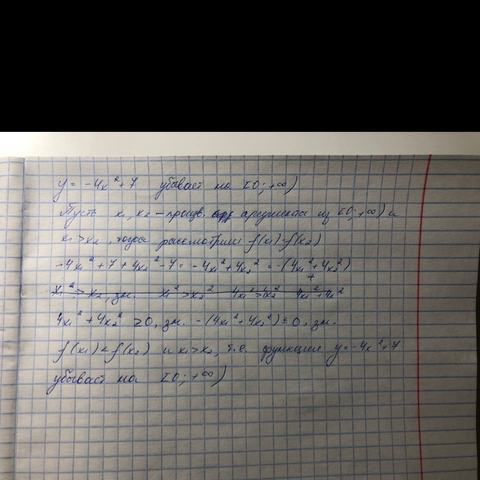 y = -4x² + 7 убывает на [0; +∞)
Пусть x₁, x₂ - произв. аргумента из [0; +∞) и
x₁ > x₂, тогда рассмотрим f(x₁) - f(x₂)
-4x₁² + 7 + 4x₂² - 7 = -4x₁² + 4x₂² = -(4x₁² + 4x₂²)
x₁² > x₂, зн. x₁² > x₂² 4x₁² > 4x₂²
4x₁² + 4x₂² ≥ 0, зн. -(4x₁² - 4x₂²) ≤ 0, зн.
f(x₁) < f(x₂) и x₁ > x₂, т.е. функция y = -4x² + 7
убывает на [0; +∞)